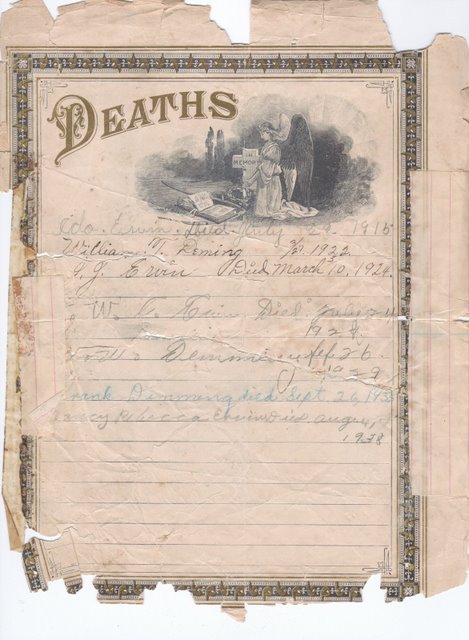 DEATHS
IN
MEMORY
Ida Erwin Died July 29. 1915
William T. Deming 1922
G. J. Erwin Died March 10, 1924
W. Died July
1928
Feb. 26.
1929
rank Demmeng died Sept. 26, 193
Rebecca Erwin Died august
1938